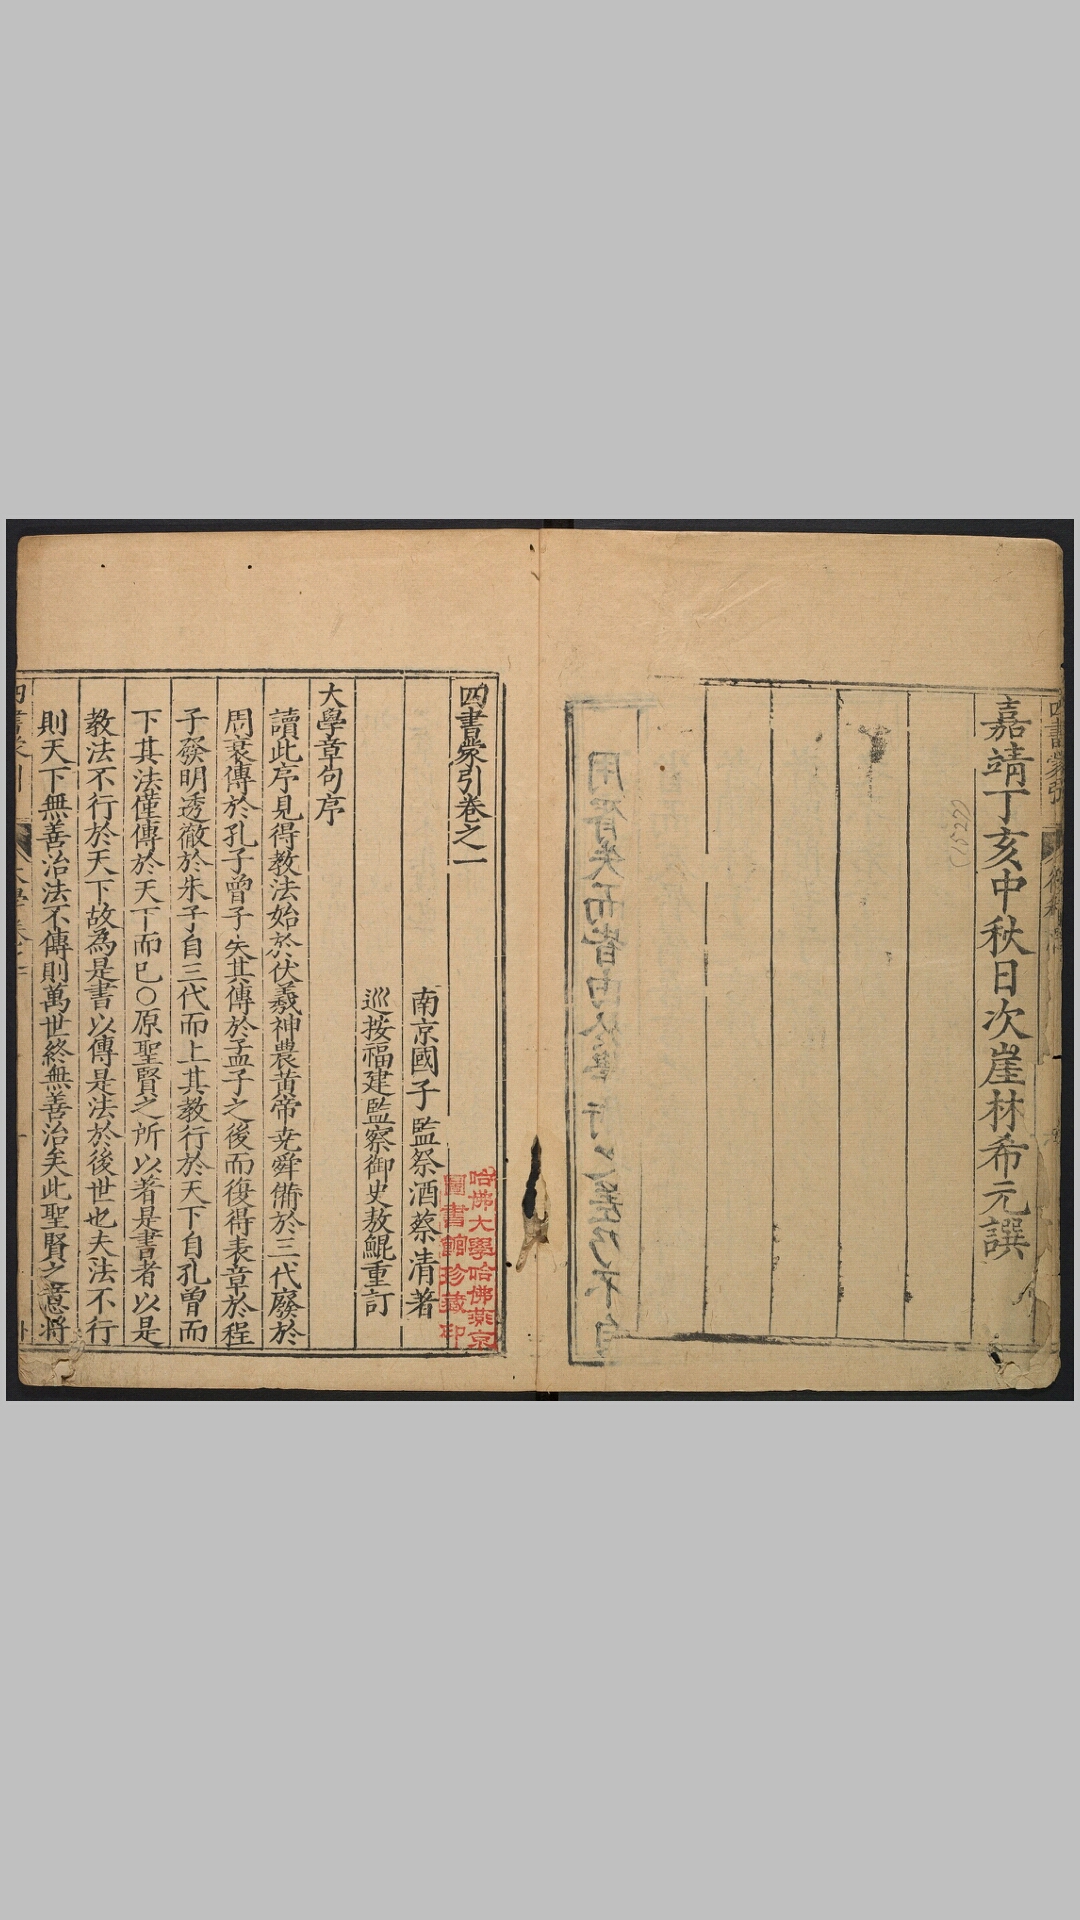 嘉靖丁亥中秋日次崖林希元譔
(1527)
四書蒙引卷之一
南京國子監祭酒蔡清著
巡按福建監察御史敖鯤重訂
大學章句序
讀此序見得教法始於伏羲神農黄帝尭舜備於三代廢於
周衰傳於孔子曾子矢其傳於孟子之後而復得表章於程
子發明透徹於朱子自三代而上其教行於天下自孔曾而
下其法僅傳於天下而已○原聖賢之所以著是書者以是
教法不行於天下故為是書以傳是法於後世也夫法不行
則天下無善治法不傳則萬世終無善治矣此聖賢之意將
哈佛大學哈佛燕京
圖書館珍藏印